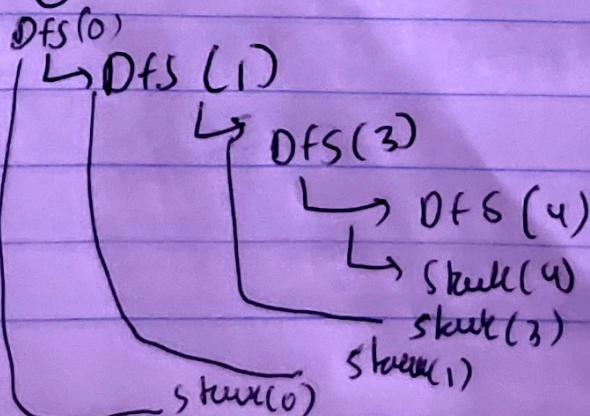 Dfs(0)
Dfs (1)
Dfs(3)
Dfs(4)
Stack(4)
Stack(3)
Stack(1)
Stack(0)